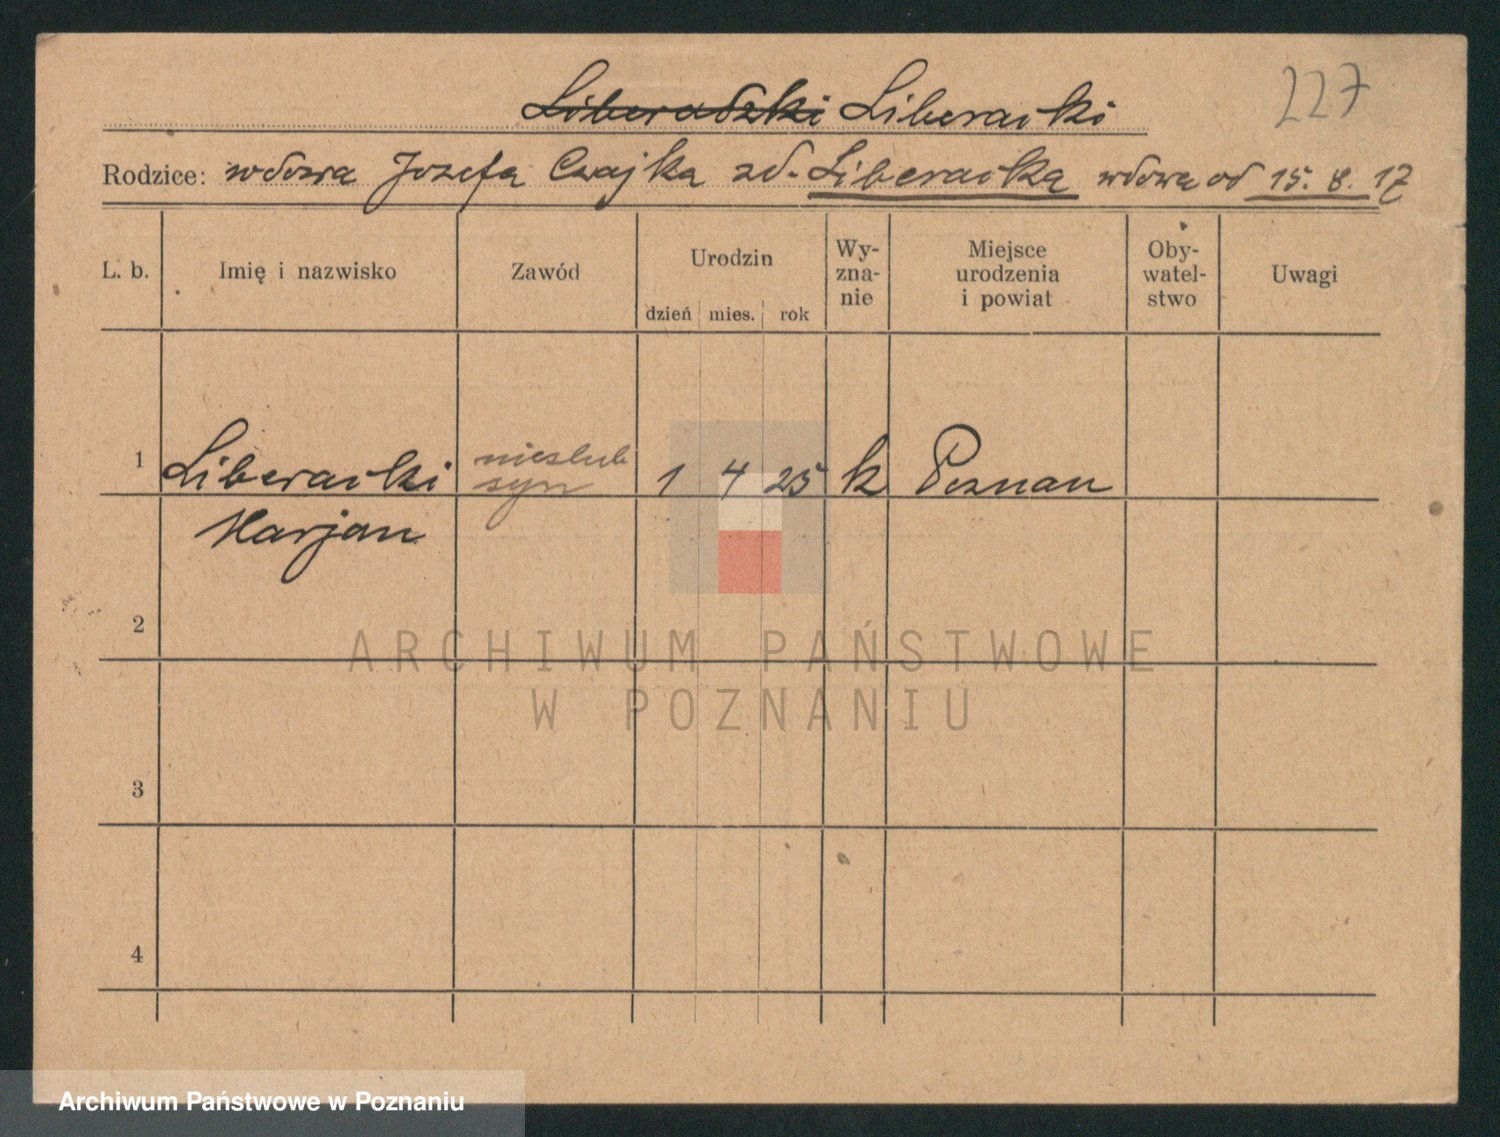 Liberadzki Liberacki 227
Rodzice: wdowa Jozefa Czajka zd. Liberacka wdowa od 15. 8. 17
L. b. Imię i nazwisko Zawód Urodzin dzień mies. rok Wy- zna- nie Miejsce urodzenia i powiat Oby- watel- stwo Uwagi
1 Liberacki nieslub syn 1 4 25 k Poznan
Marjan
2
ARCHIWUM PAŃSTWOWE
W POZNANIU
3
4
Archiwum Państwowe w Poznaniu